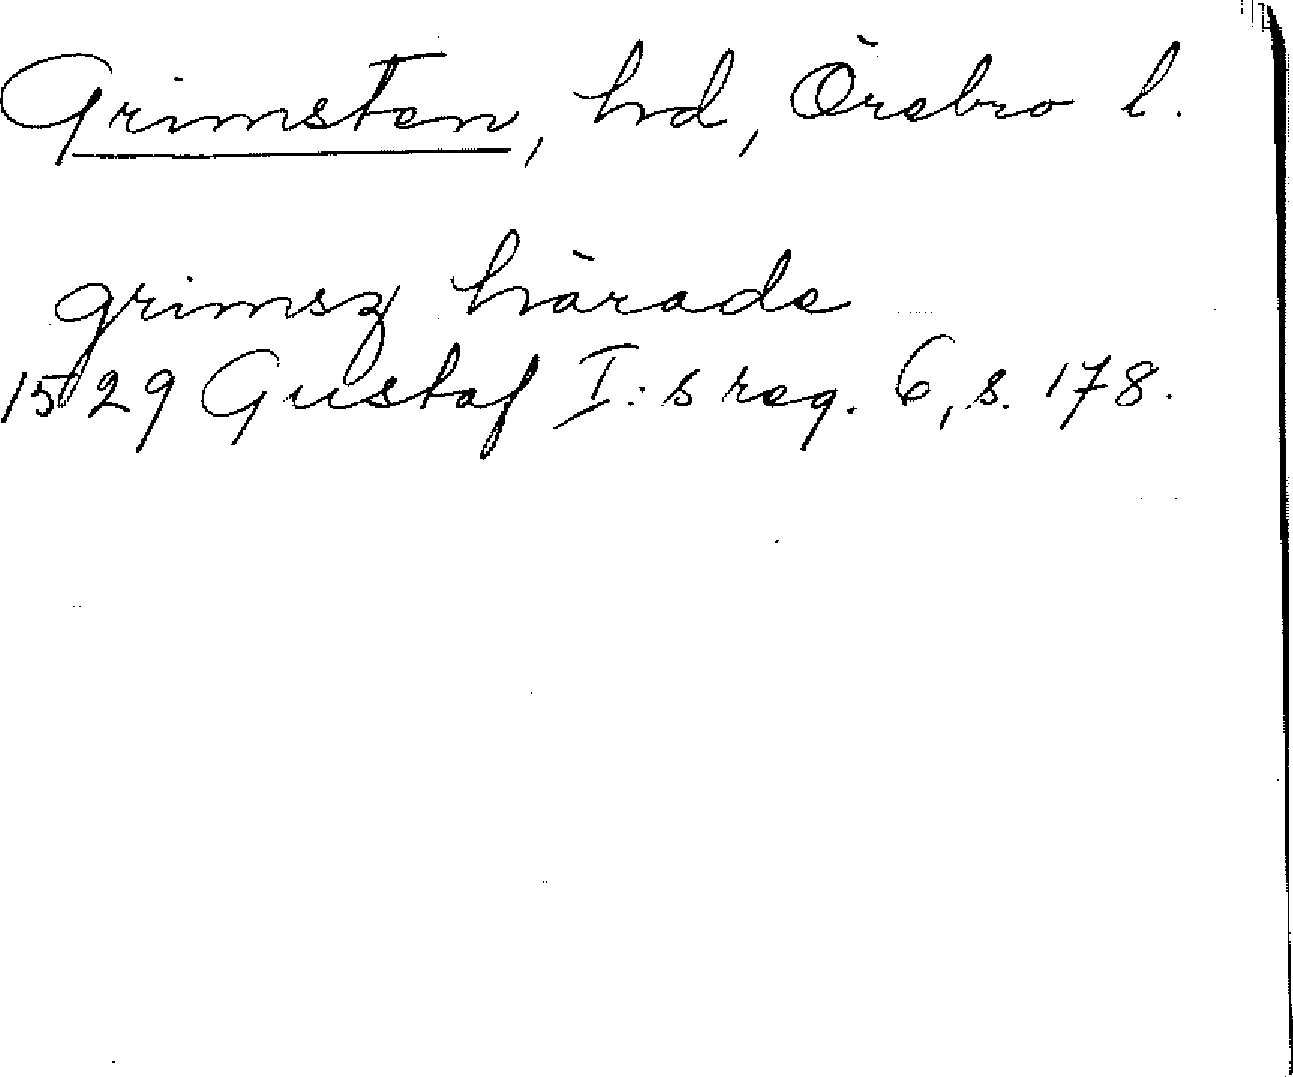 Grimsten, hd, Örebro l.
grimsz härade
1529 Gustaf I:s reg. 6, s. 178.